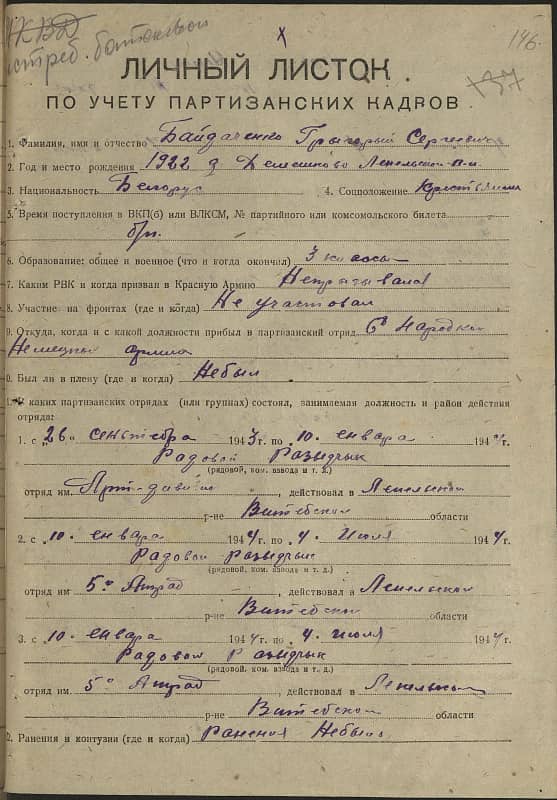 НКВД
истреб. батальон
х
146.
137
ЛИЧНЫЙ ЛИСТОК
ПО УЧЕТУ ПАРТИЗАНСКИХ КАДРОВ
1. Фамилия, имя и отчество Байдаченко Грыгорый Сергеевич
2. Год и место рождения 1922 д Демешково Лепельского р-н
3. Национальность Белорус 4. Соцположение
5. Время поступления в ВКП(б) или ВЛКСМ, № партийного или комсомольского билета
б/п.
6. Образование: общее и военное (что и когда окончил) 3 класса
7. Каким РВК и когда призван в Красную Армию Непризывался
8. Участие на фронтах (где и когда) Не участвовал
9. Откуда, когда и с какой должности прибыл в партизанский отряд
армии
0. Был ли в плену (где и когда) Небыл
1. В каких партизанских отрядах (или группах) состоял, занимаемая должность и район действия
отряда:
1. с „26" сентебра 1943 г. по 10. енвара 1944 г.
Радовой Развидчык
(рядовой, ком. взвода и т. д.)
отряд им. , действовал в Лепельском
р-не Витебской области
2. с 10. енвара 1944 г. по 4. Июля 1944 г.
Радовой Развидчык
(рядовой, ком. взвода и т. д.)
отряд им 5й Атрад , действовал в Лепельском
р-не Витебской области
3. с 10. енвара 1944 г. по 4. июля 1944 г.
Радовой Развидчык
(рядовой, ком. взвода и т. д.)
отряд им. 5й Атрад , действовал в Лепельском
р-не Витебской области
2. Ранения и контузии (где и когда) Ранения Небыло